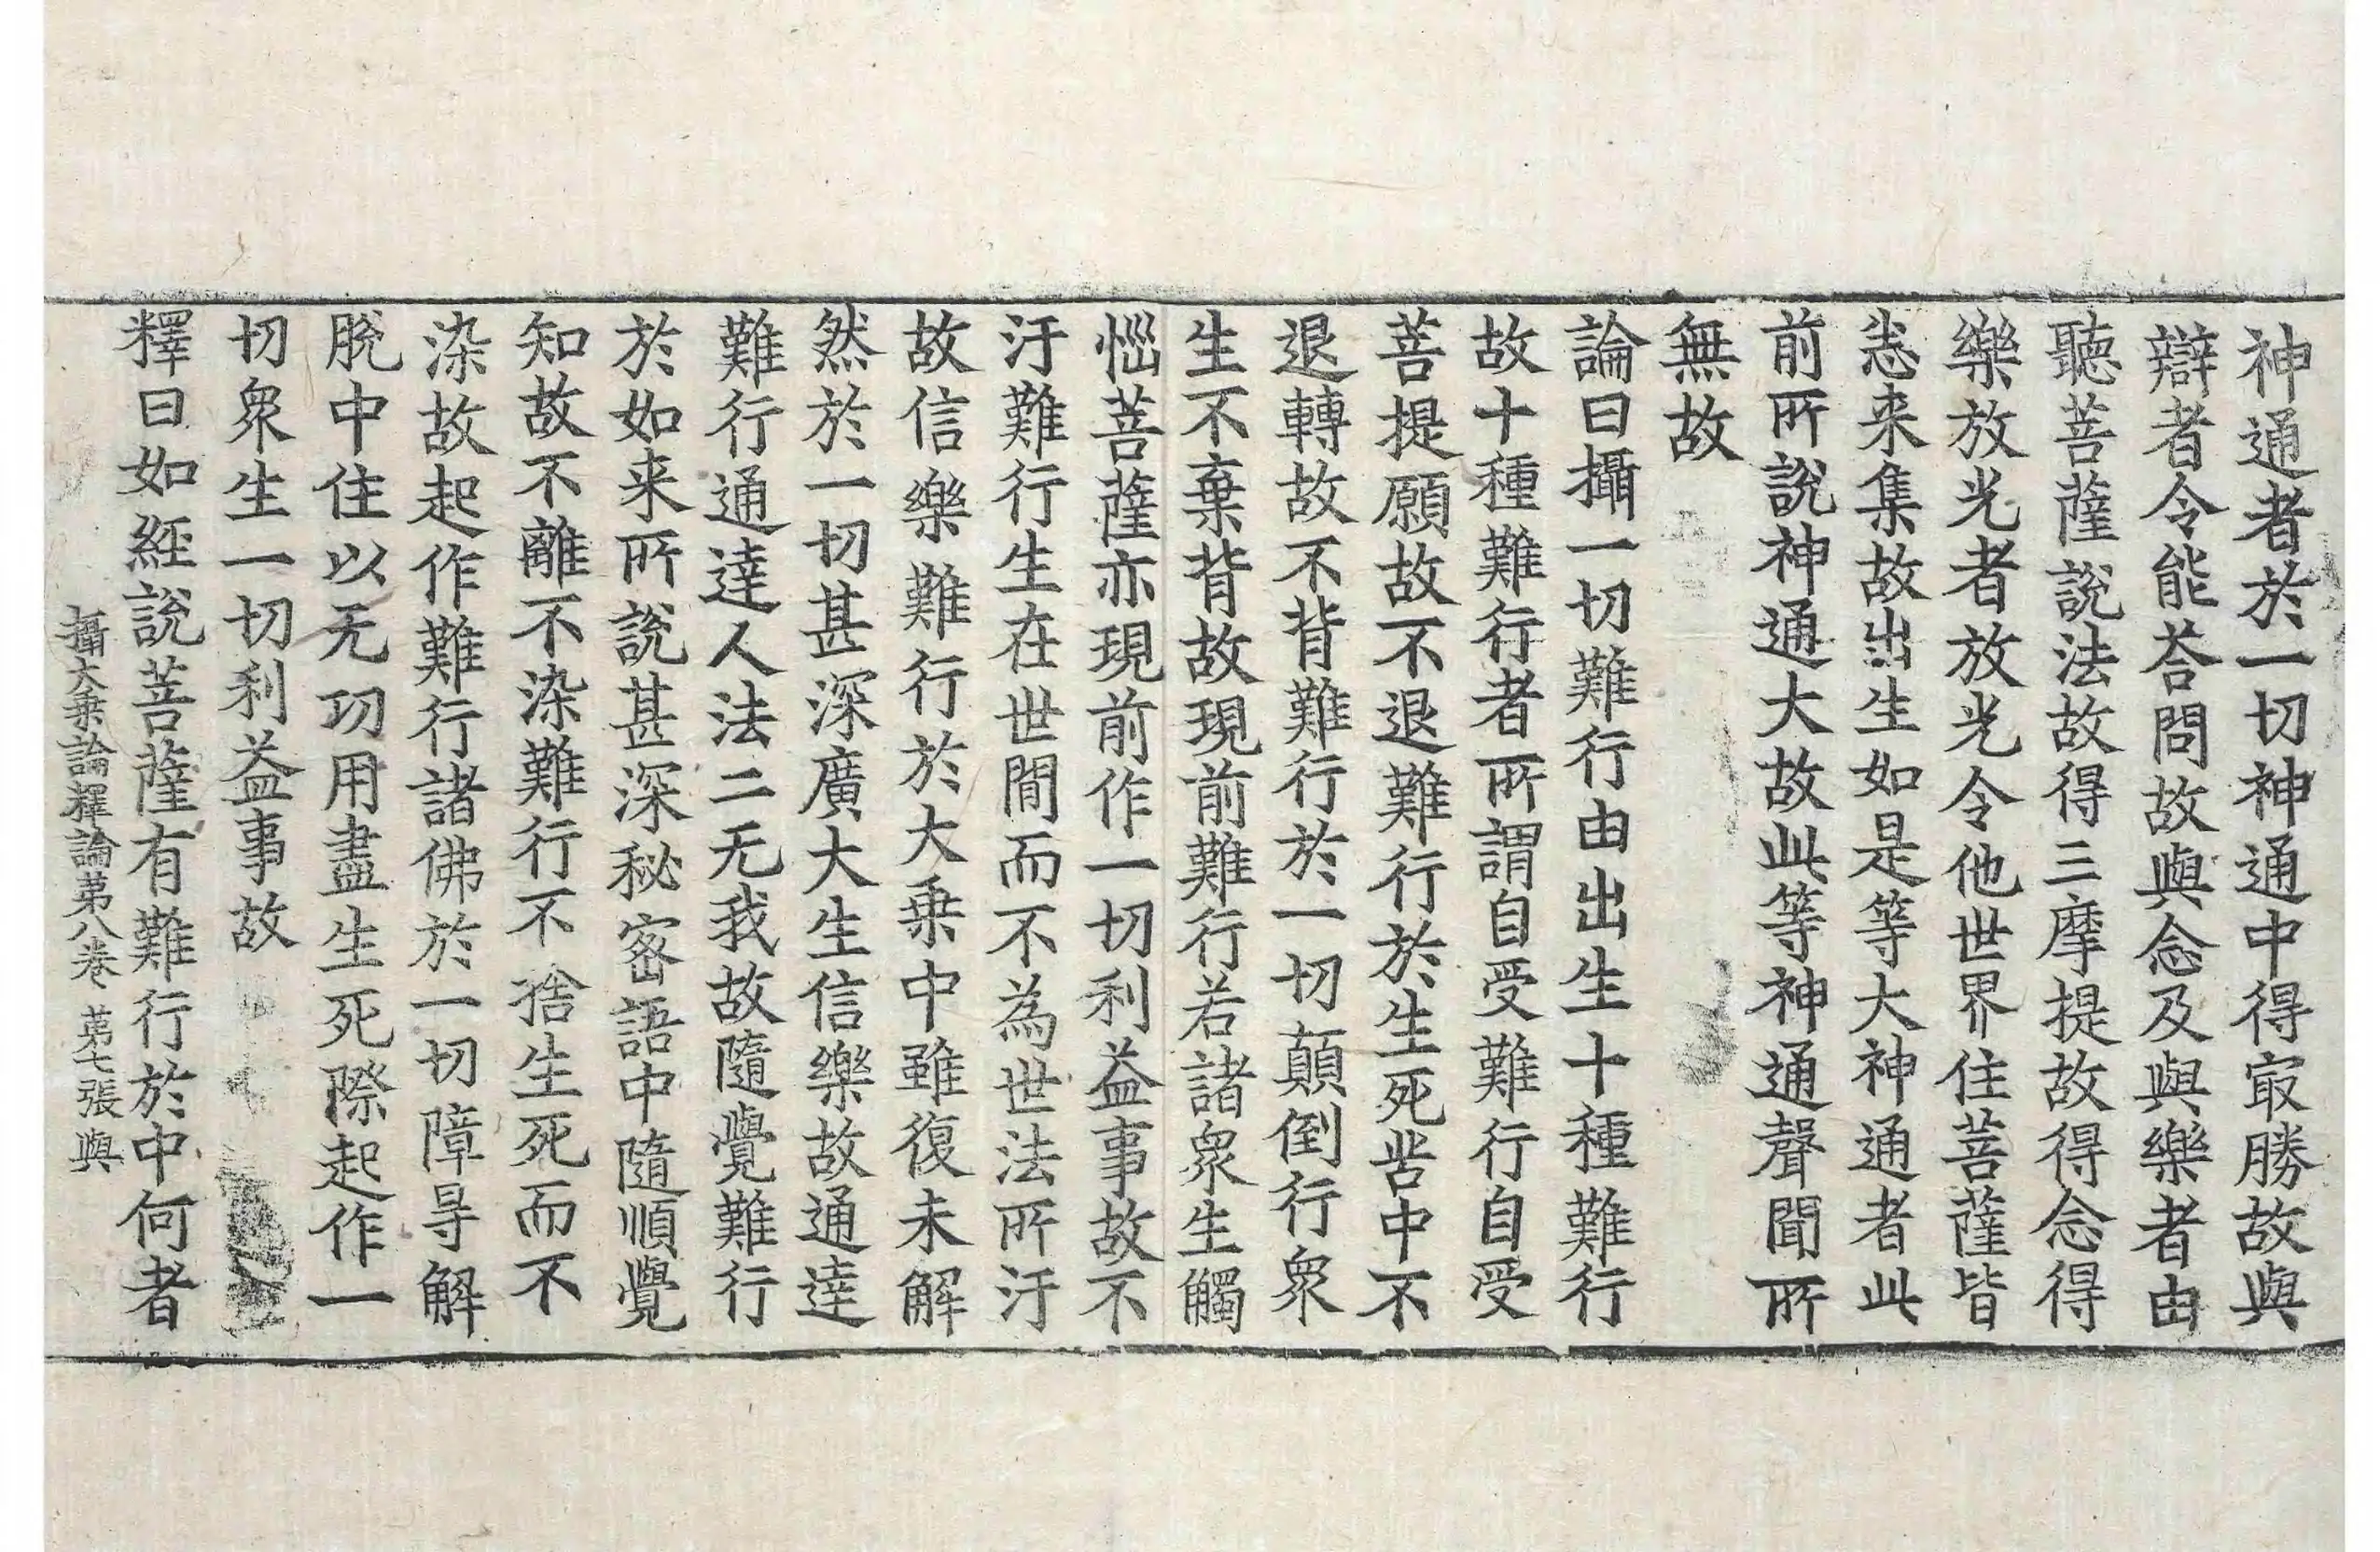 神通者於一切神通中得㝡勝故與
辯者令能荅問故與念及與樂者由
聽菩薩說法故得三摩提故得念得
樂放光者放光令他世界住菩薩皆
悉来集故出生如是等大神通者此
前所說神通大故此等神通聲聞所
無故
論曰攝一切難行由出生十種難行
故十種難行者所謂自受難行自受
菩提願故不退難行於生死苦中不
退轉故不背難行於一切顛倒行衆
生不棄背故現前難行若諸衆生觸
惱菩薩亦現前作一切利益事故不
汙難行生在世間而不為世法所汙
故信樂難行於大乗中雖復未解
然於一切甚深廣大生信樂故通達
難行通達人法二无我故隨覺難行
於如来所說甚深秘密語中隨順覺
知故不離不染難行不捨生死而不
染故起作難行諸佛於一切障㝵解
脫中住以无功用盡生死際起作一
切衆生一切利益事故
釋曰如經說菩薩有難行於中何者
攝大乗論釋論苐八卷 苐七張 與